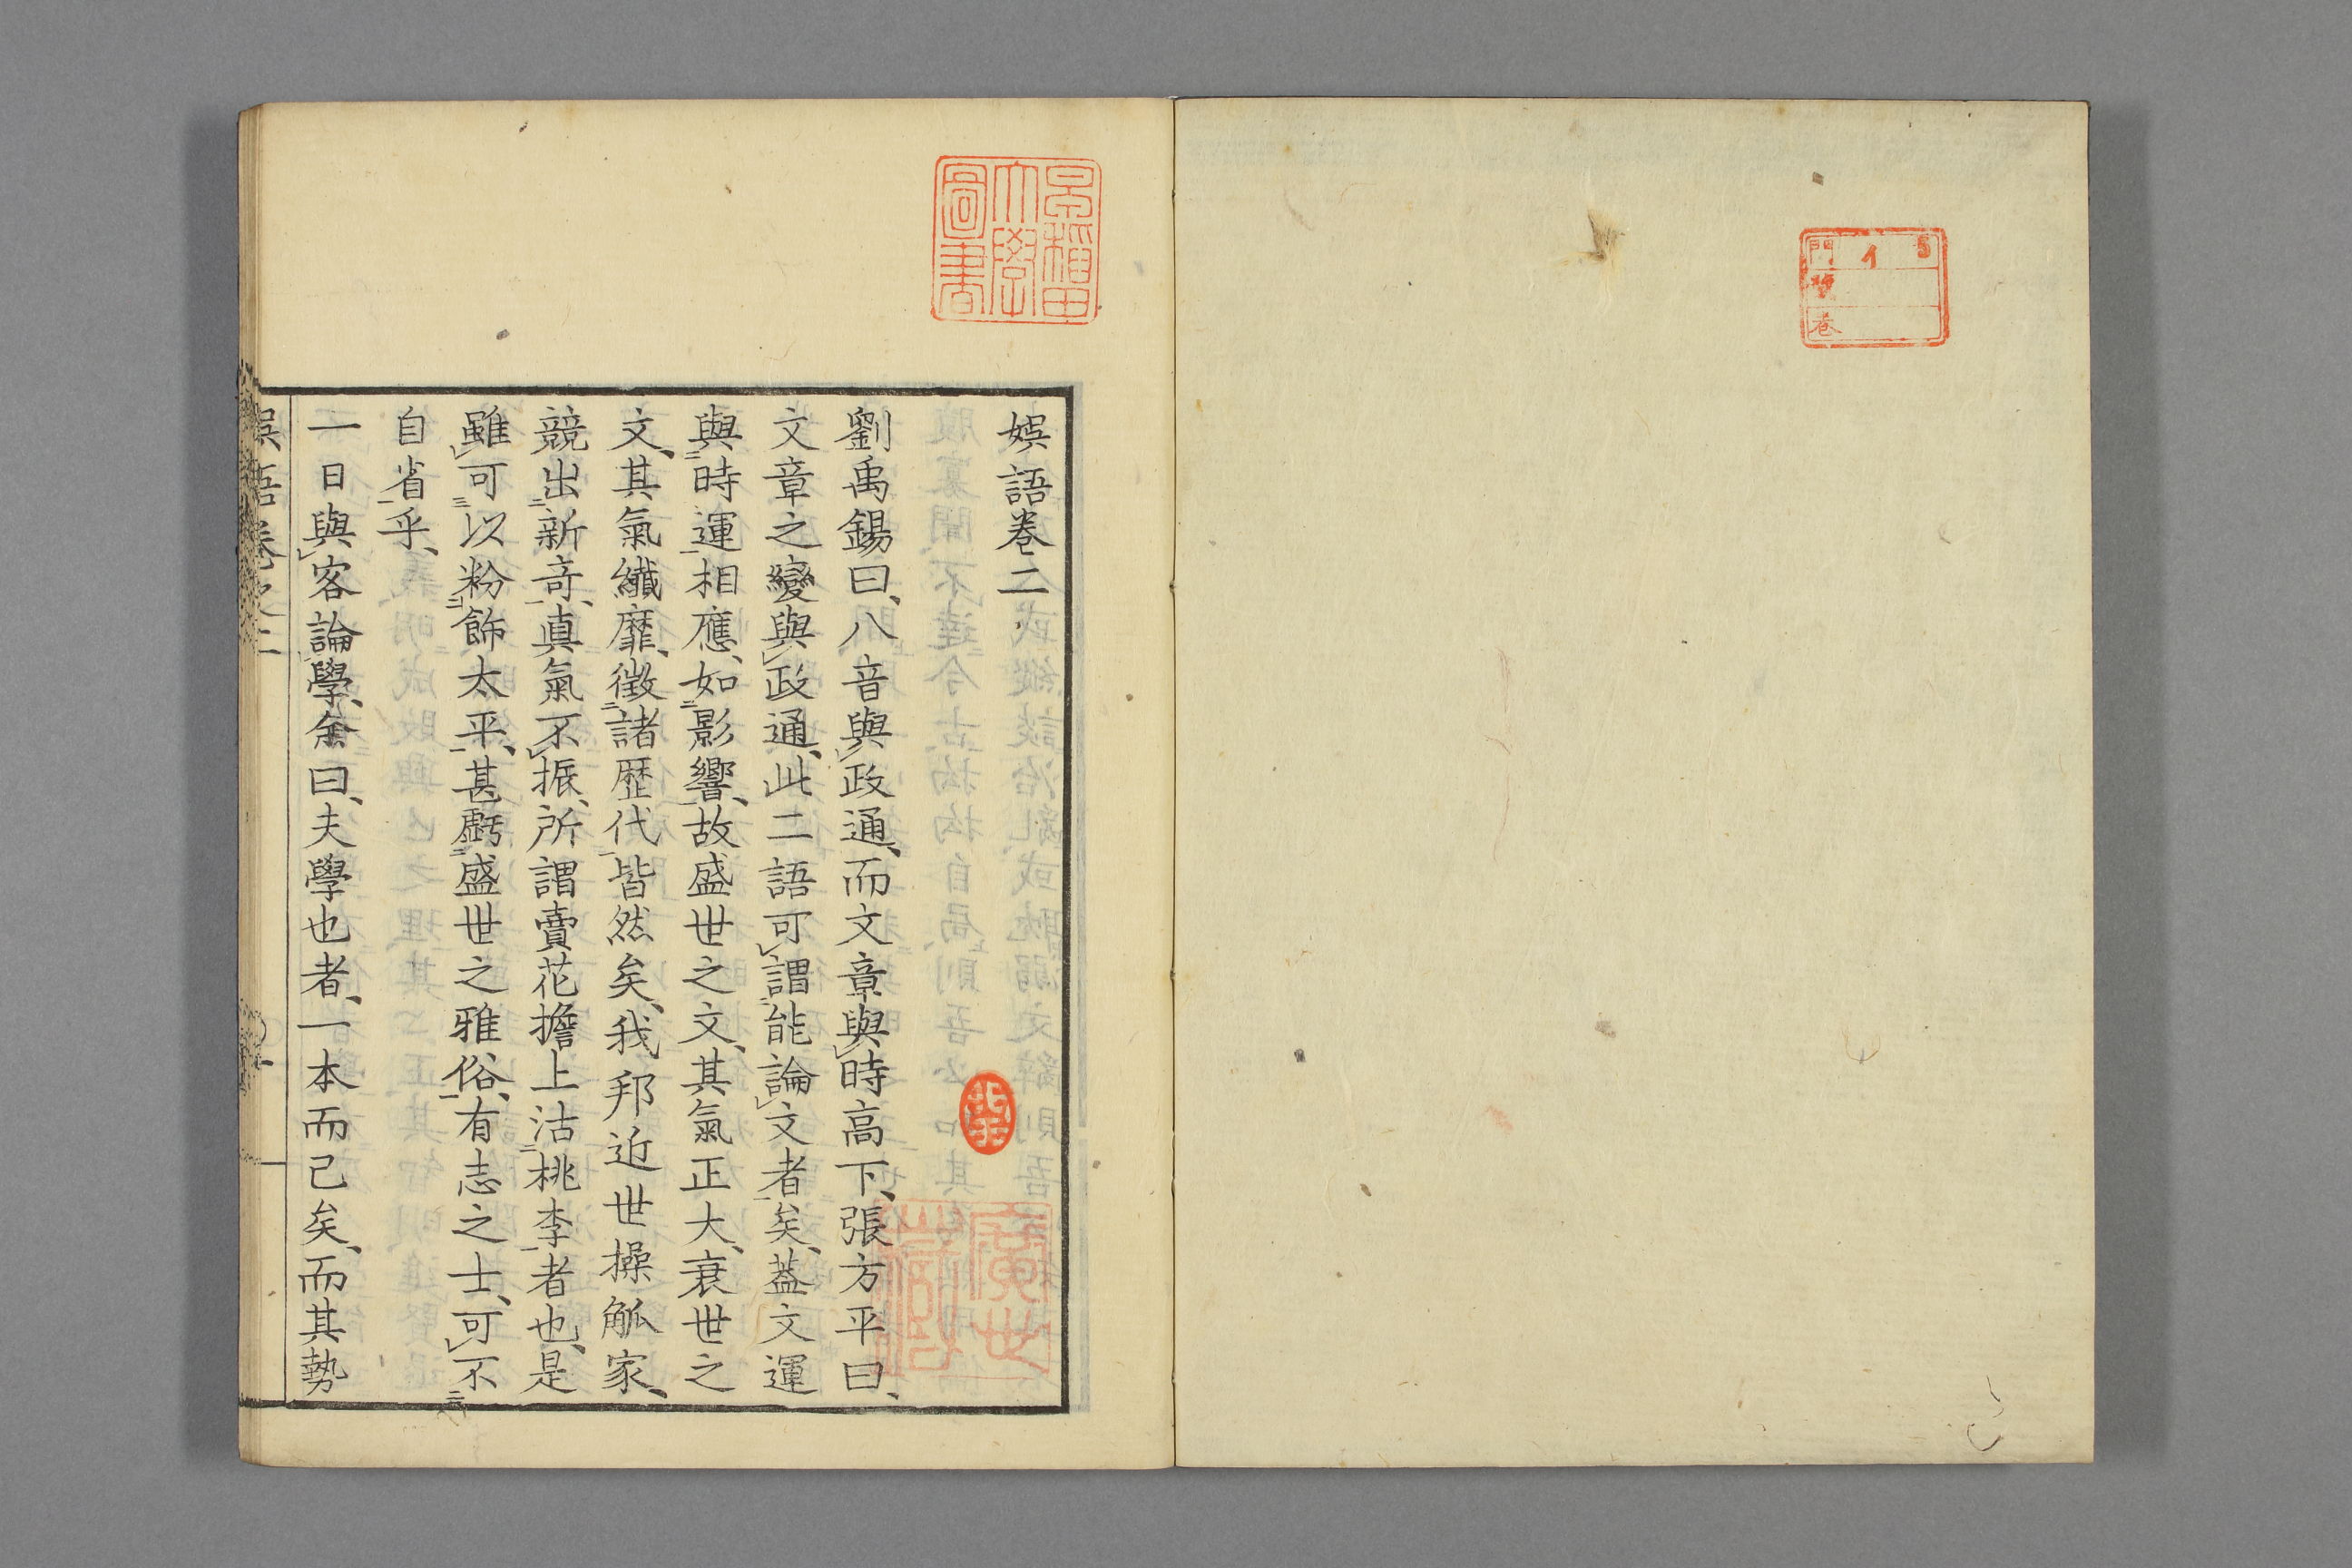 門 イ 5
號
卷
早稲田
大學
圖書
娯語卷二
劉禹錫曰、八音與政通、而文章與時高下、張方平曰、
文章之變與政通、此二語可謂能論文者矣、蓋文運
與時運相應、如影響、故盛世之文、其氣正大、衰世之
文、其氣纖靡、徴諸歴代皆然矣、我邦近世操觚家、
競出新奇、真氣不振、所謂賣花擔上沽桃李者也、是
雖可以粉飾太平、甚虧盛世之雅俗、有志之士、可不
自省乎、
一日與客論學、余曰、夫學也者、一本而已矣、而其勢
娯語卷之二